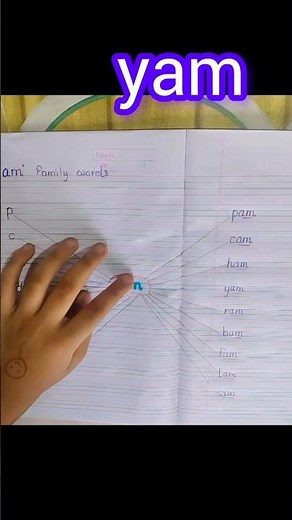 yam
am' family words
p
pam
c
cam
n
ham
yam
ram
bam
fam
lam